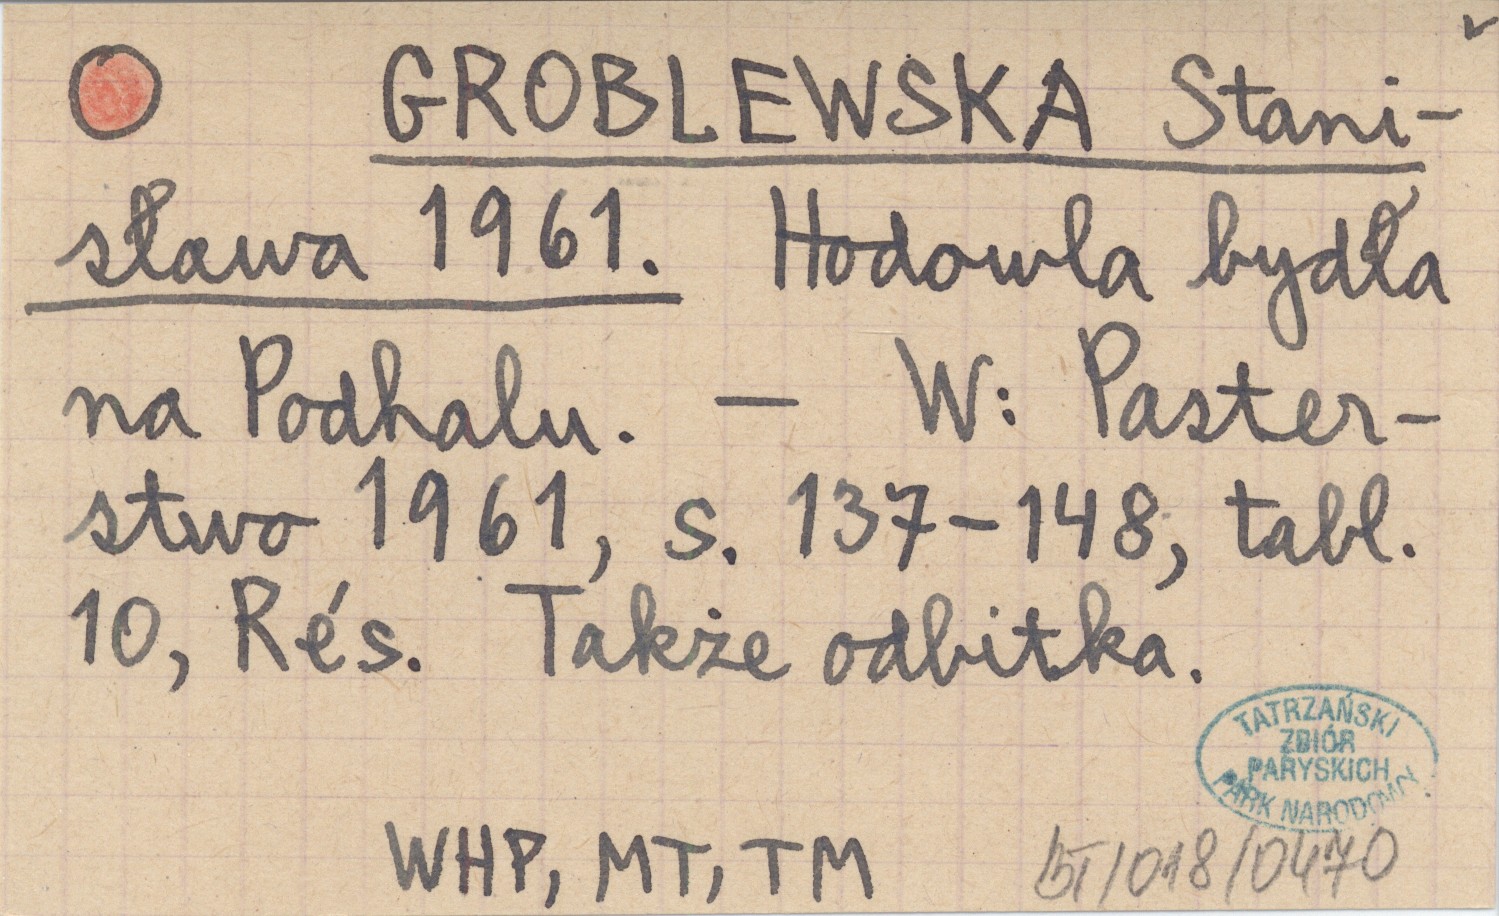 GROBLEWSKA Stani-
sława 1961. Hodowla bydła
na Podhalu. — W: Paster-
stwo 1961, s. 137-148, tabl.
10, Rés. Także odbitka.
TATRZAŃSKI
ZBIÓR
PARYSKICH
PARK NARODOWY
WHP, MT, TM
BT/018/0470